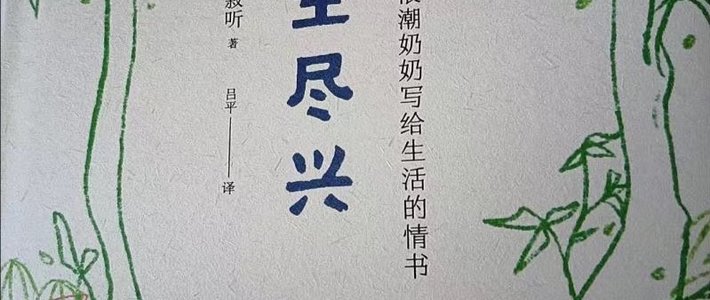 潮奶奶写给生活的情书
生尽兴
寂听 著
吕平——译